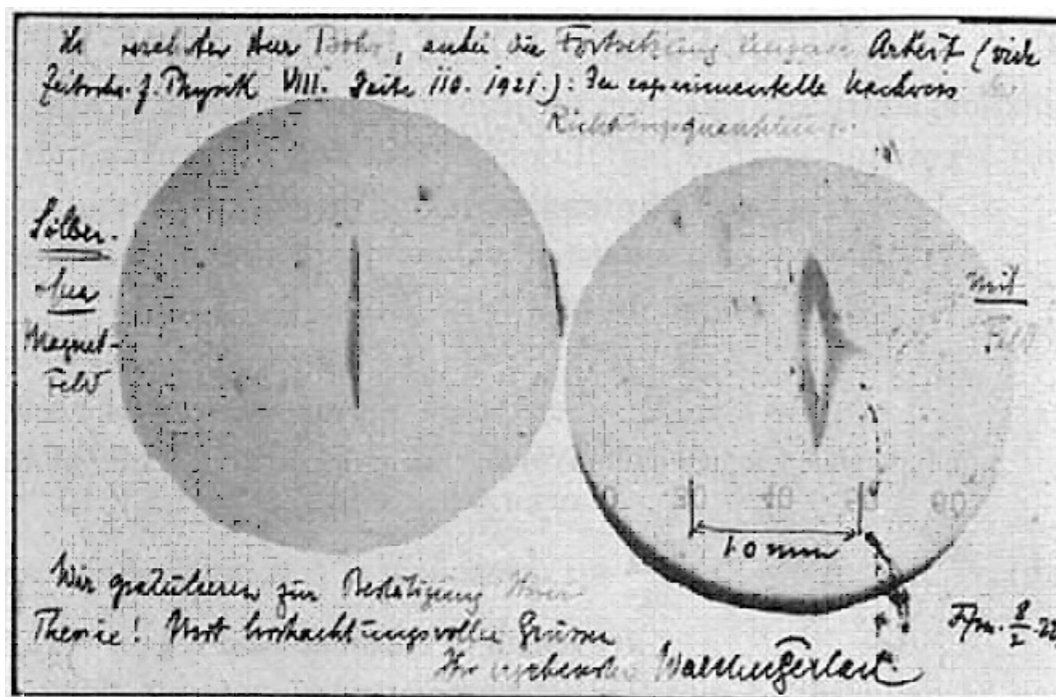 verehrter Herr Bohr, anbei die Fortsetzung unserer Arbeit (vide
Zeitschr. f. Physik VIII. Seite 110. 1921.): Der experimentelle Nachweis
Richtungsquantelung.
Silber
ohne
Magnet-
Feld
mit
Feld
1.0 mm
Wir gratulieren zur Bestätigung Ihrer
Theorie! Mit hochachtungsvollen Grüssen
Ihr ergebenster Walther Gerlach.
Ffm. 8/2. 22.